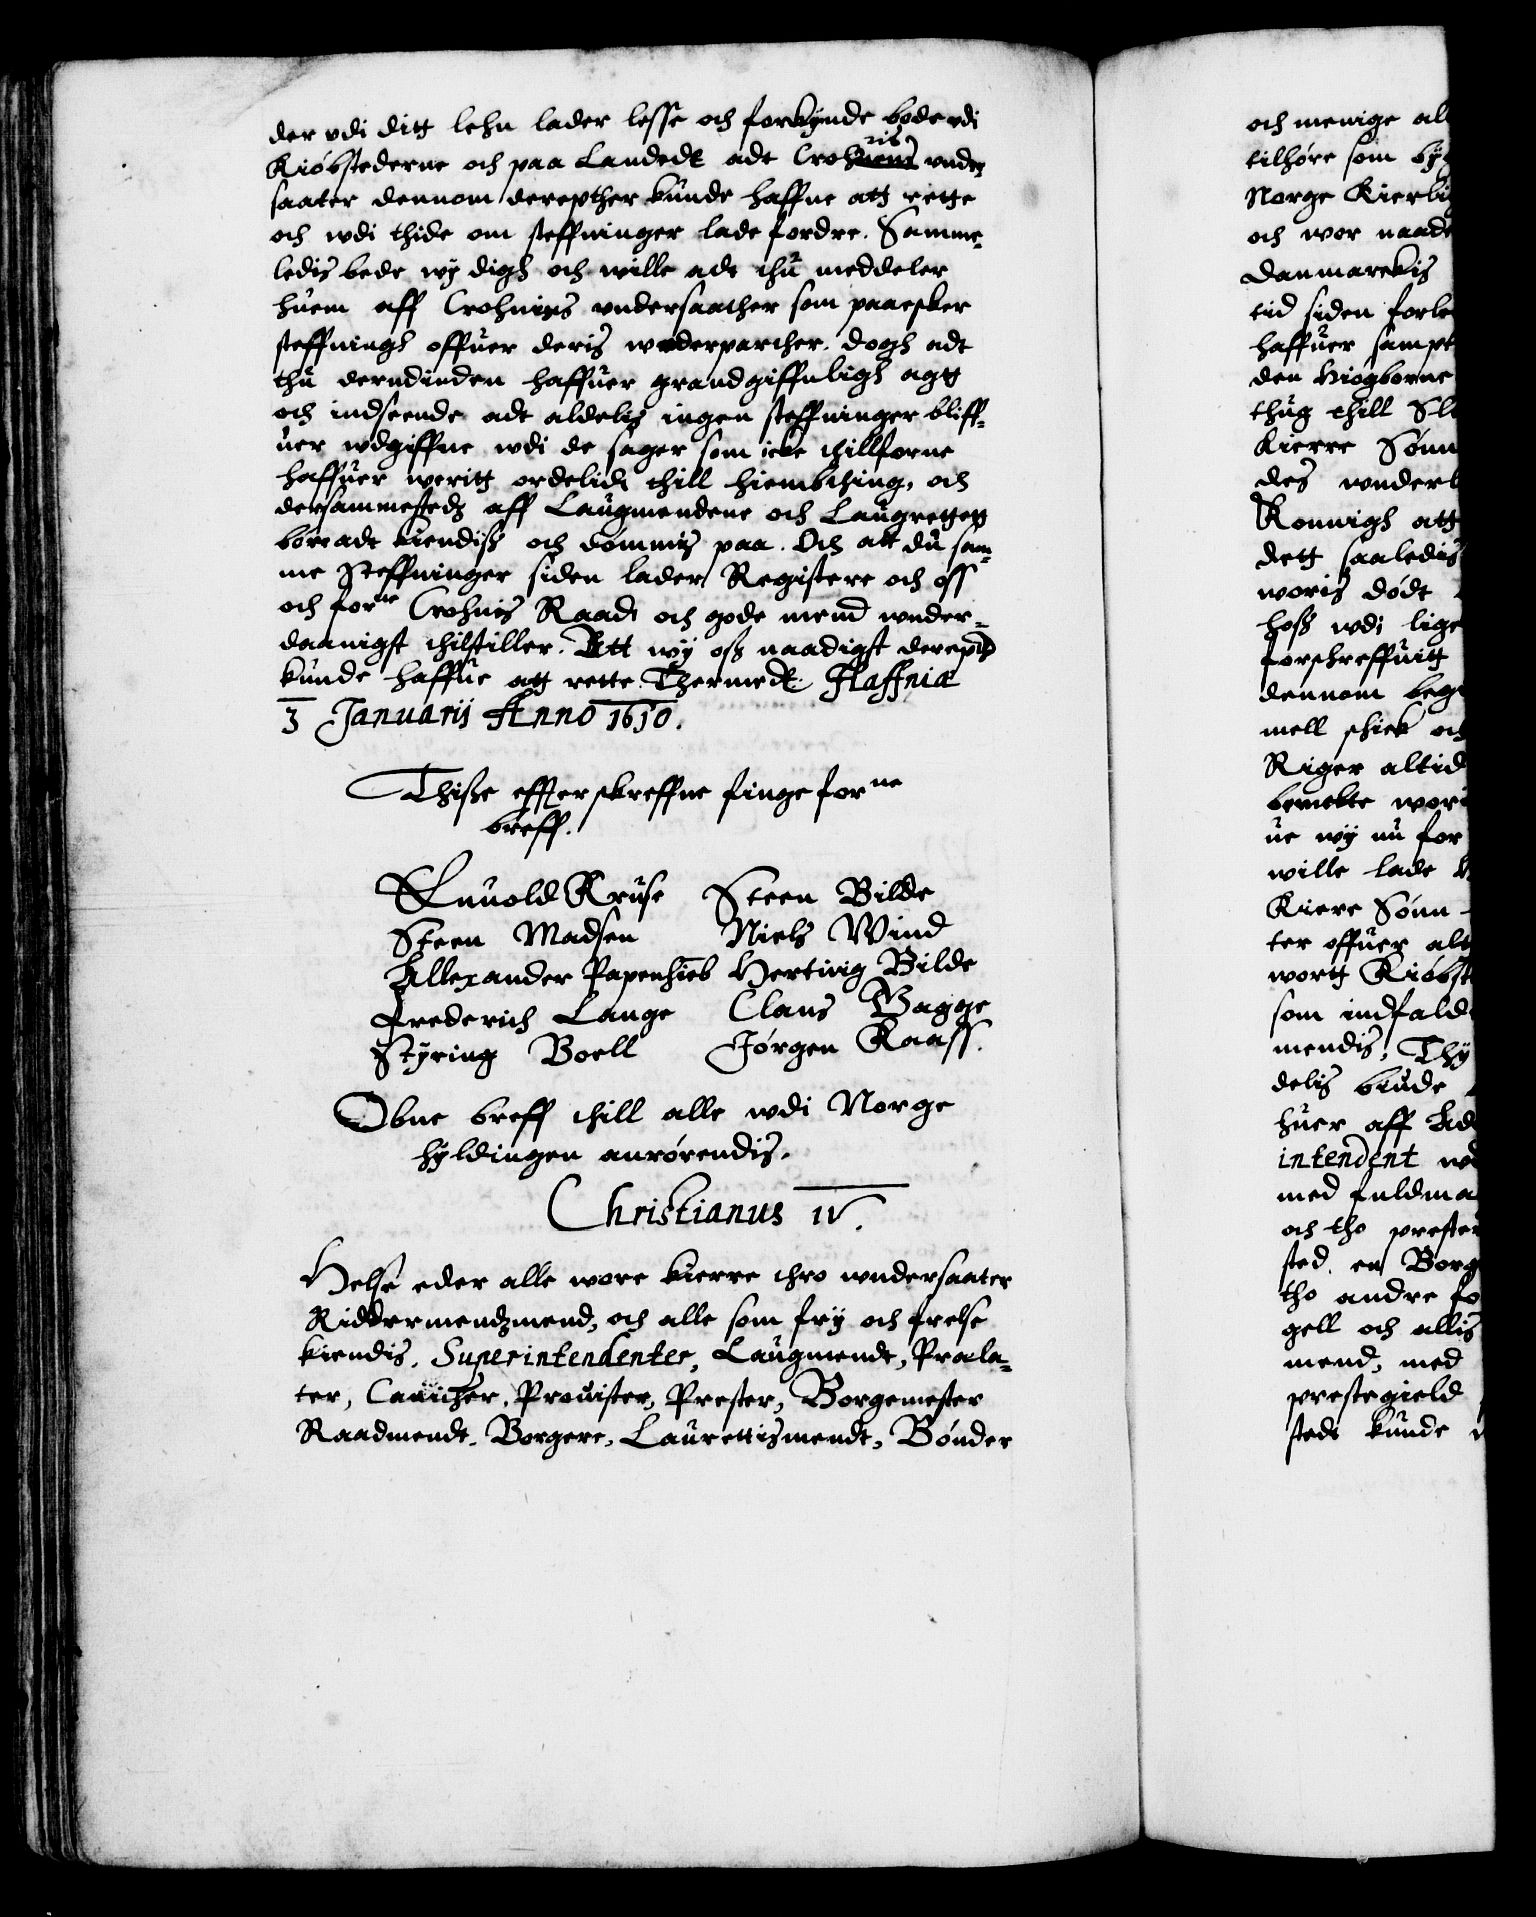 der vdi ditt lehn lader lesse och forkynde bode vdi
Kiøbstederne och paa Landedt adt Crohnens nis vnder
saater dennom derepther kunde haffue att rette
och wdi thide om steffninger lade fordre. Samme-
ledis bede wy digh och wille adt thu meddeler
huem aff Crohnins vndersaather som paaesker
steffningh offuer deris wederparther. dogh adt
thu derudinden haffuer grandgiffueligh agtt
och indseende adt aldelis ingen steffninger bliff-
uer wdgiffne wdi de sager som icke thillforne
haffuer weritt ordelidt thill hiembthing, och
dersammestedz aff Laugmendene och Laugrettett
børe adt kiendis och dømmis paa. Och att du sam-
me Steffninger siden lader Registere och oss
och forne Crohnis Raadt och gode mend wnder-
daanigst thilstiller. Att wy oss naadigst derepther
kunde haffue att rette. Thermedt. Haffniæ
3 Januarij Anno 1610.
Thisse effterskreffne finge forne
breff.
Enuold Kruse Steen Bilde
Steen Madsen Niels Wind
Allexander Papenhieb Hertuig Bilde
Frederich Lange Claus Bagge
Styring Boell Jørgen Kaass.
Obne breff thill alle wdi Norge
hyldingen anrørendis.
Christianus IV.
Helse eder alle wore kierre thro wndersaater
Riddermendzmend, och alle som fry och frelse
kiendis, Superintendenter, Laugmendt, Præla-
ter, Canicher, Prouister, Prester, Borgemester
Raadmendt, Borgere, Laurettismendt, Bønder
och menige al
tilhøre som byg
Norge Kierli
och wor naade
Danmarckis
tid siden forle
haffuer sampt
den Høgborne
thug thill Sl
Kierre Sønn
des wnderl
Konnigh att
dett saaledis
woris dødt
hoss wdi lige
forschreffuitt
dennom beg
mell schick och
Riger altid
bemelte wor
ue wy nu for
wille lade
Kiere Sønn
ter offuer alt
wortt Kiøbst
som indfald
mendis, Thy
delis biude
huer aff Ad
intendent wd
med fuldma
och tho prester
sted. en Borg
tho andre fo
gell och allis
mend, med
prestegield
stedt kunde